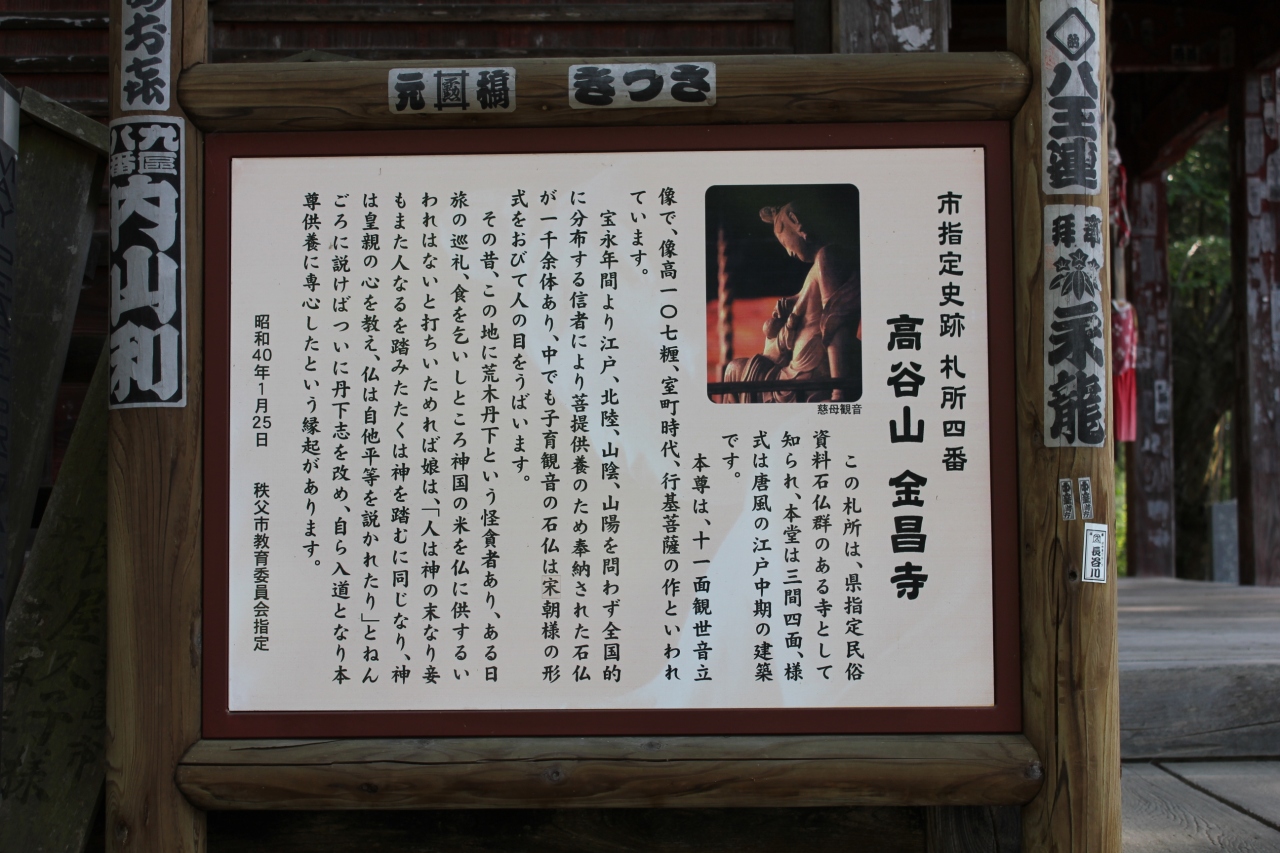 市指定史跡 札所四番
高谷山 金昌寺
慈母観音
この札所は、県指定民俗
資料石仏群のある寺として
知られ、本堂は三間四面、様
式は唐風の江戸中期の建築
です。
本尊は、十一面観世音立
像で、像高一〇七糎、室町時代、行基菩薩の作といわれ
ています。
宝永年間より江戸、北陸、山陰、山陽を問わず全国的
に分布する信者により菩提供養のため奉納された石仏
が一千余体あり、中でも子育観音の石仏は宋朝様の形
式をおびて人の目をうばいます。
その昔、この地に荒木丹下という怪貪者あり、ある日
旅の巡礼、食を乞いしところ神国の米を仏に供するい
われはないと打ちいためれば娘は、「人は神の末なり妾
もまた人なるを踏みたたくは神を踏むに同じなり、神
は皇親の心を教え、仏は自他平等を説かれたり」とねん
ごろに説けばついに丹下志を改め、自ら入道となり本
尊供養に専心したという縁起があります。
昭和40年1月25日 秩父市教育委員会指定
八王連
永龍
長谷川
元
きつさ
あお㐂
九區
八番
内山利